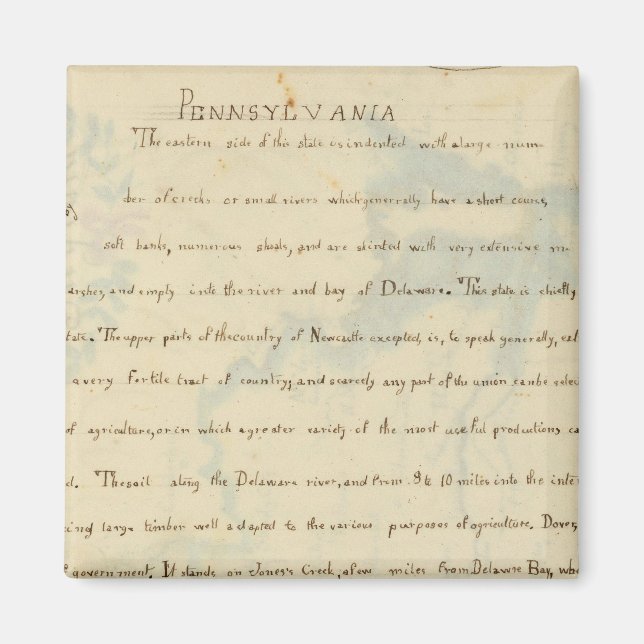 PENNSYLVANIA
The eastern side of this state is indented with a large num-
ber of creeks or small rivers which generrally have a short course,
soft banks, numerous shoals, and are skirted with very extensive m-
arshes, and empty into the river and bay of Delaware. This state is chiefly
tate. The upper parts of the country of Newcastle excepted, is, to speak generally, ext
a very fertile tract of country; and scarcely any part of the union can be selec
of agriculture, or in which a greater variety of the most useful productions ca
d. The soil along the Delaware river, and from 8 to 10 miles into the inter
cing large timber well adapted to the various purposes of agriculture. Dover,
government. It stands on Jones's Creek, a few miles from Delawre Bay, whe